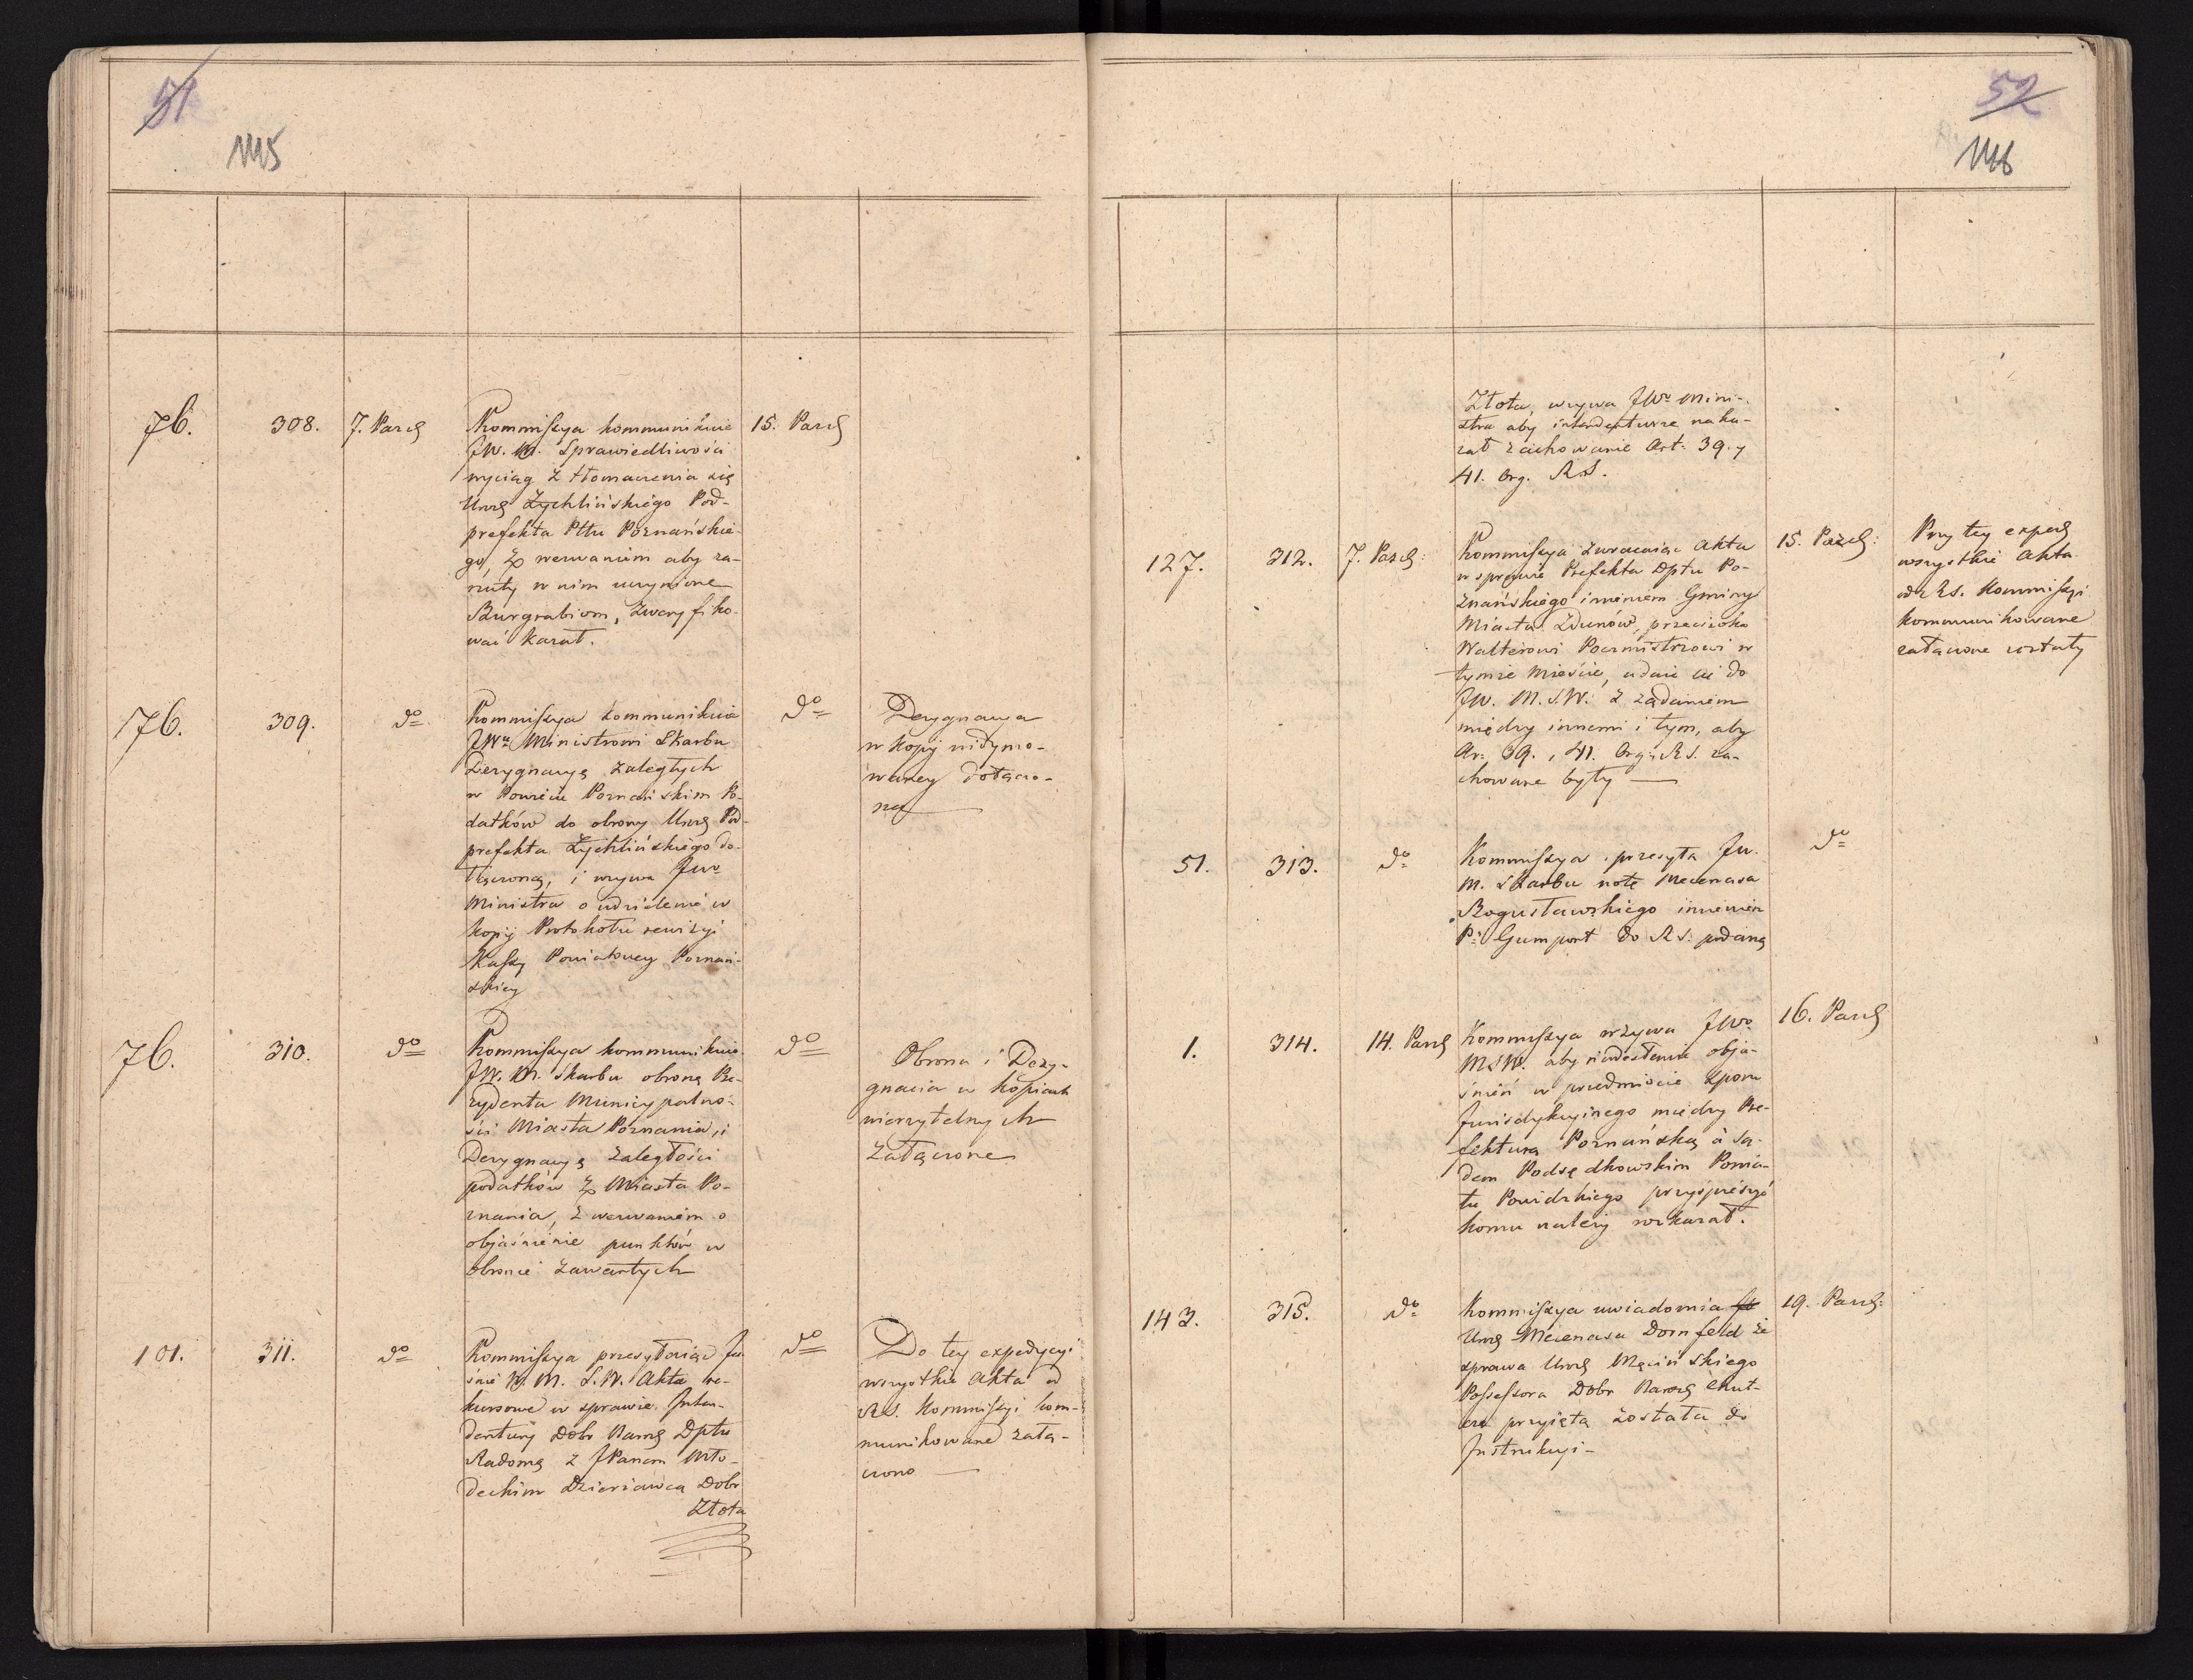 51
145
76.
308.
7. Paźd
Kommissya kommunikuie
JW. M. Sprawiedliwości
wyciąg z tłomaczenia się
Urodz Żychlińskiego Pod-
prefekta Pttu Poznańskie-
go, z wezwaniem aby za-
rzuty w nim uczynione
Burgrabiom, zweryfiko-
wać kazał.
15. Paźd
76.
309.
do
Kommissya kommunikuie
JWu Ministrowi Skarbu
Dezygnacyą zaległych
w Powiecie Poznańskim Po-
datków do obrony Urodz Pod-
prefekta Żychlińskiego do-
łączoną, i wzywa JWo
Ministra o udzielenie w
kopij Protokołu rewizyi
Kassy Powiatowey Poznań-
skiey
do
Dezygnacya
w kopij widymo-
waney dołączo-
na
76.
310.
do
Kommissya kommunikuie
JW. M. Skarbu obronę Pre-
zydenta Municypalno-
ści Miasta Poznania, i
Dezygnacyą zaległości
podatków z Miasta Po-
znania, z wezwaniem o
objaśnienie punktów w
obronie zawartych
do
Obrona i Dezy-
gnacia w kopiach
wierzytelnych
załączone
101.
311.
do
Kommissya przesyłaiąc Ja-
śnie W. M. S. W. Akta re-
kursowe w sprawie Inten-
dentury Dobr Narod Dptu
Radoms z JPanem Mło-
deckim Dzierżawcą Dobr
Złota
do
Do tey expedycyi
wszystkie Akta od
R.S. Kommissyi kom-
munikowane załą-
czono
52
146
Złota, wzywa JWo Mini-
stra aby intendenturze naka-
zał zachowanie Art: 39. y
41. Org. R.S.
127.
312.
7. Paźd:
Kommissya zwracaiąc Akta
w sprawie Prefekta Dptu Po-
znańskiego imieniem Gminy
Miasta Zdunów, przeciwko
Walterowi Poczmistrzowi w
tymże Mieście, udaie się do
JW. M. S. W. z żądaniem
między innemi i tym, aby
Ar: 39., 41. Org: R.S. za-
chowane były
15. Paźd:
Przy tey exped
wszystkie Akta
od R.S. Kommissyi
kommunikowane
załączone zostały
51.
313.
do
Kommissya przesyła JW.
M. Skarbu notę Mecenasa
Bogusławskiego imieniem
P: Gumpert do R.S. podaną
do
1.
314.
14. Paźd
Kommissya wzywa JWo
MSW. aby nadesłanie obja-
śnień w przedmiocie sporu
Jurisdykcyinego między Pre-
fekturą Poznańską a Są-
dem Podsędkowskim Powia-
tu Powidzkiego przyśpieszyć
komu należy rozkazał.
16. Paźd
143.
315.
do
Kommissya uwiadomia
Urodz Mecenasa Dornfeld że
sprawa Urodz Męcińskiego
Possessora Dobr Narod
przyięta została do
Instrukcyi
19. Paźd: